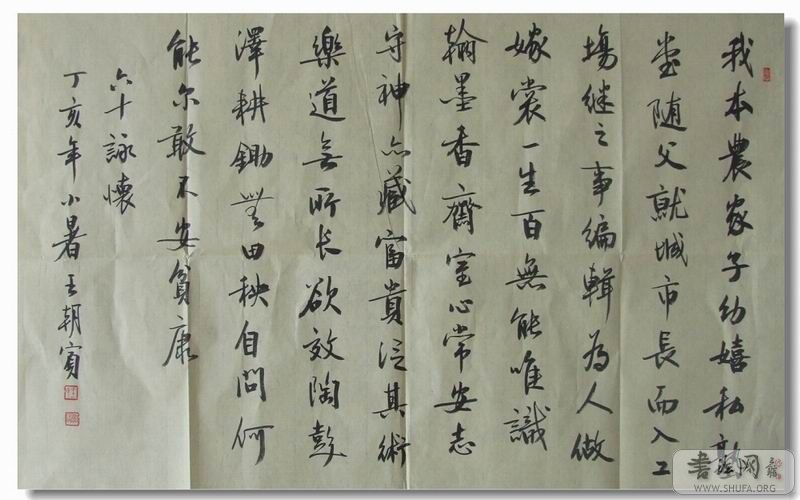 我本農家子幼嬉私塾
堂随父就城市長而入工
場继之事編輯為人做
嫁裳一生百無能唯識
翰墨香齋室心常安志
守神亦藏富貴泛其術
樂道無所长欲效陶彭
澤耕鋤無田秧自問何
能尔敢不安貧康
六十詠懷
丁亥年小暑王朝賓
書藝网
WWW.SHUFA.ORG